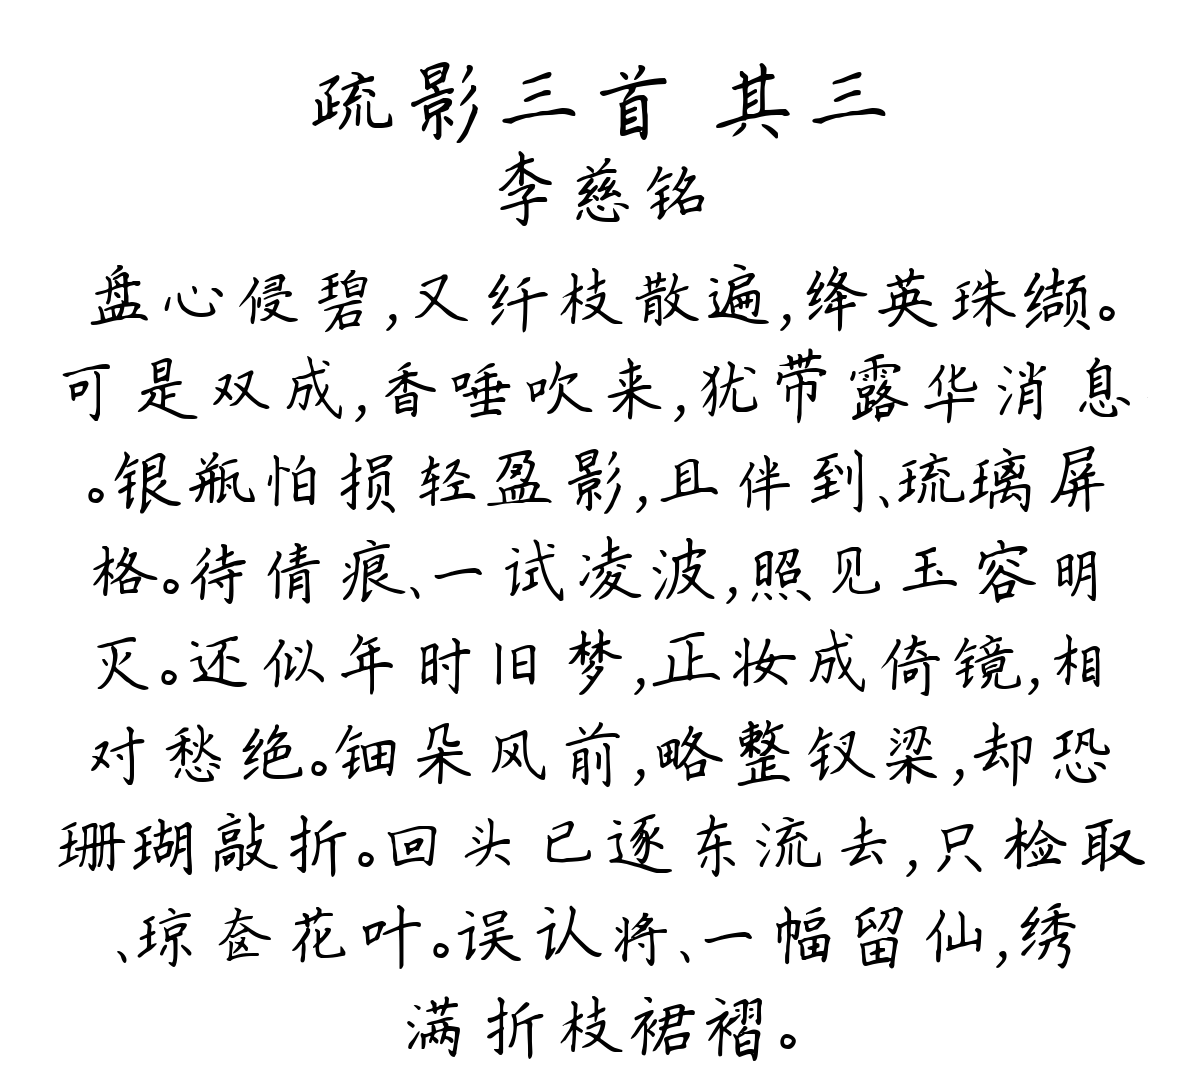 疏影三首 其三
李慈铭
盘心侵碧,又纤枝散遍,绛英珠缬。
可是双成,香唾吹来,犹带露华消息
。银瓶怕损轻盈影,且伴到、琉璃屏
格。待倩痕、一试凌波,照见玉容明
灭。还似年时旧梦,正妆成倚镜,相
对愁绝。钿朵风前,略整钗梁,却恐
珊瑚敲折。回头已逐东流去,只检取
、琼奁花叶。误认将、一幅留仙,绣
满折枝裙褶。